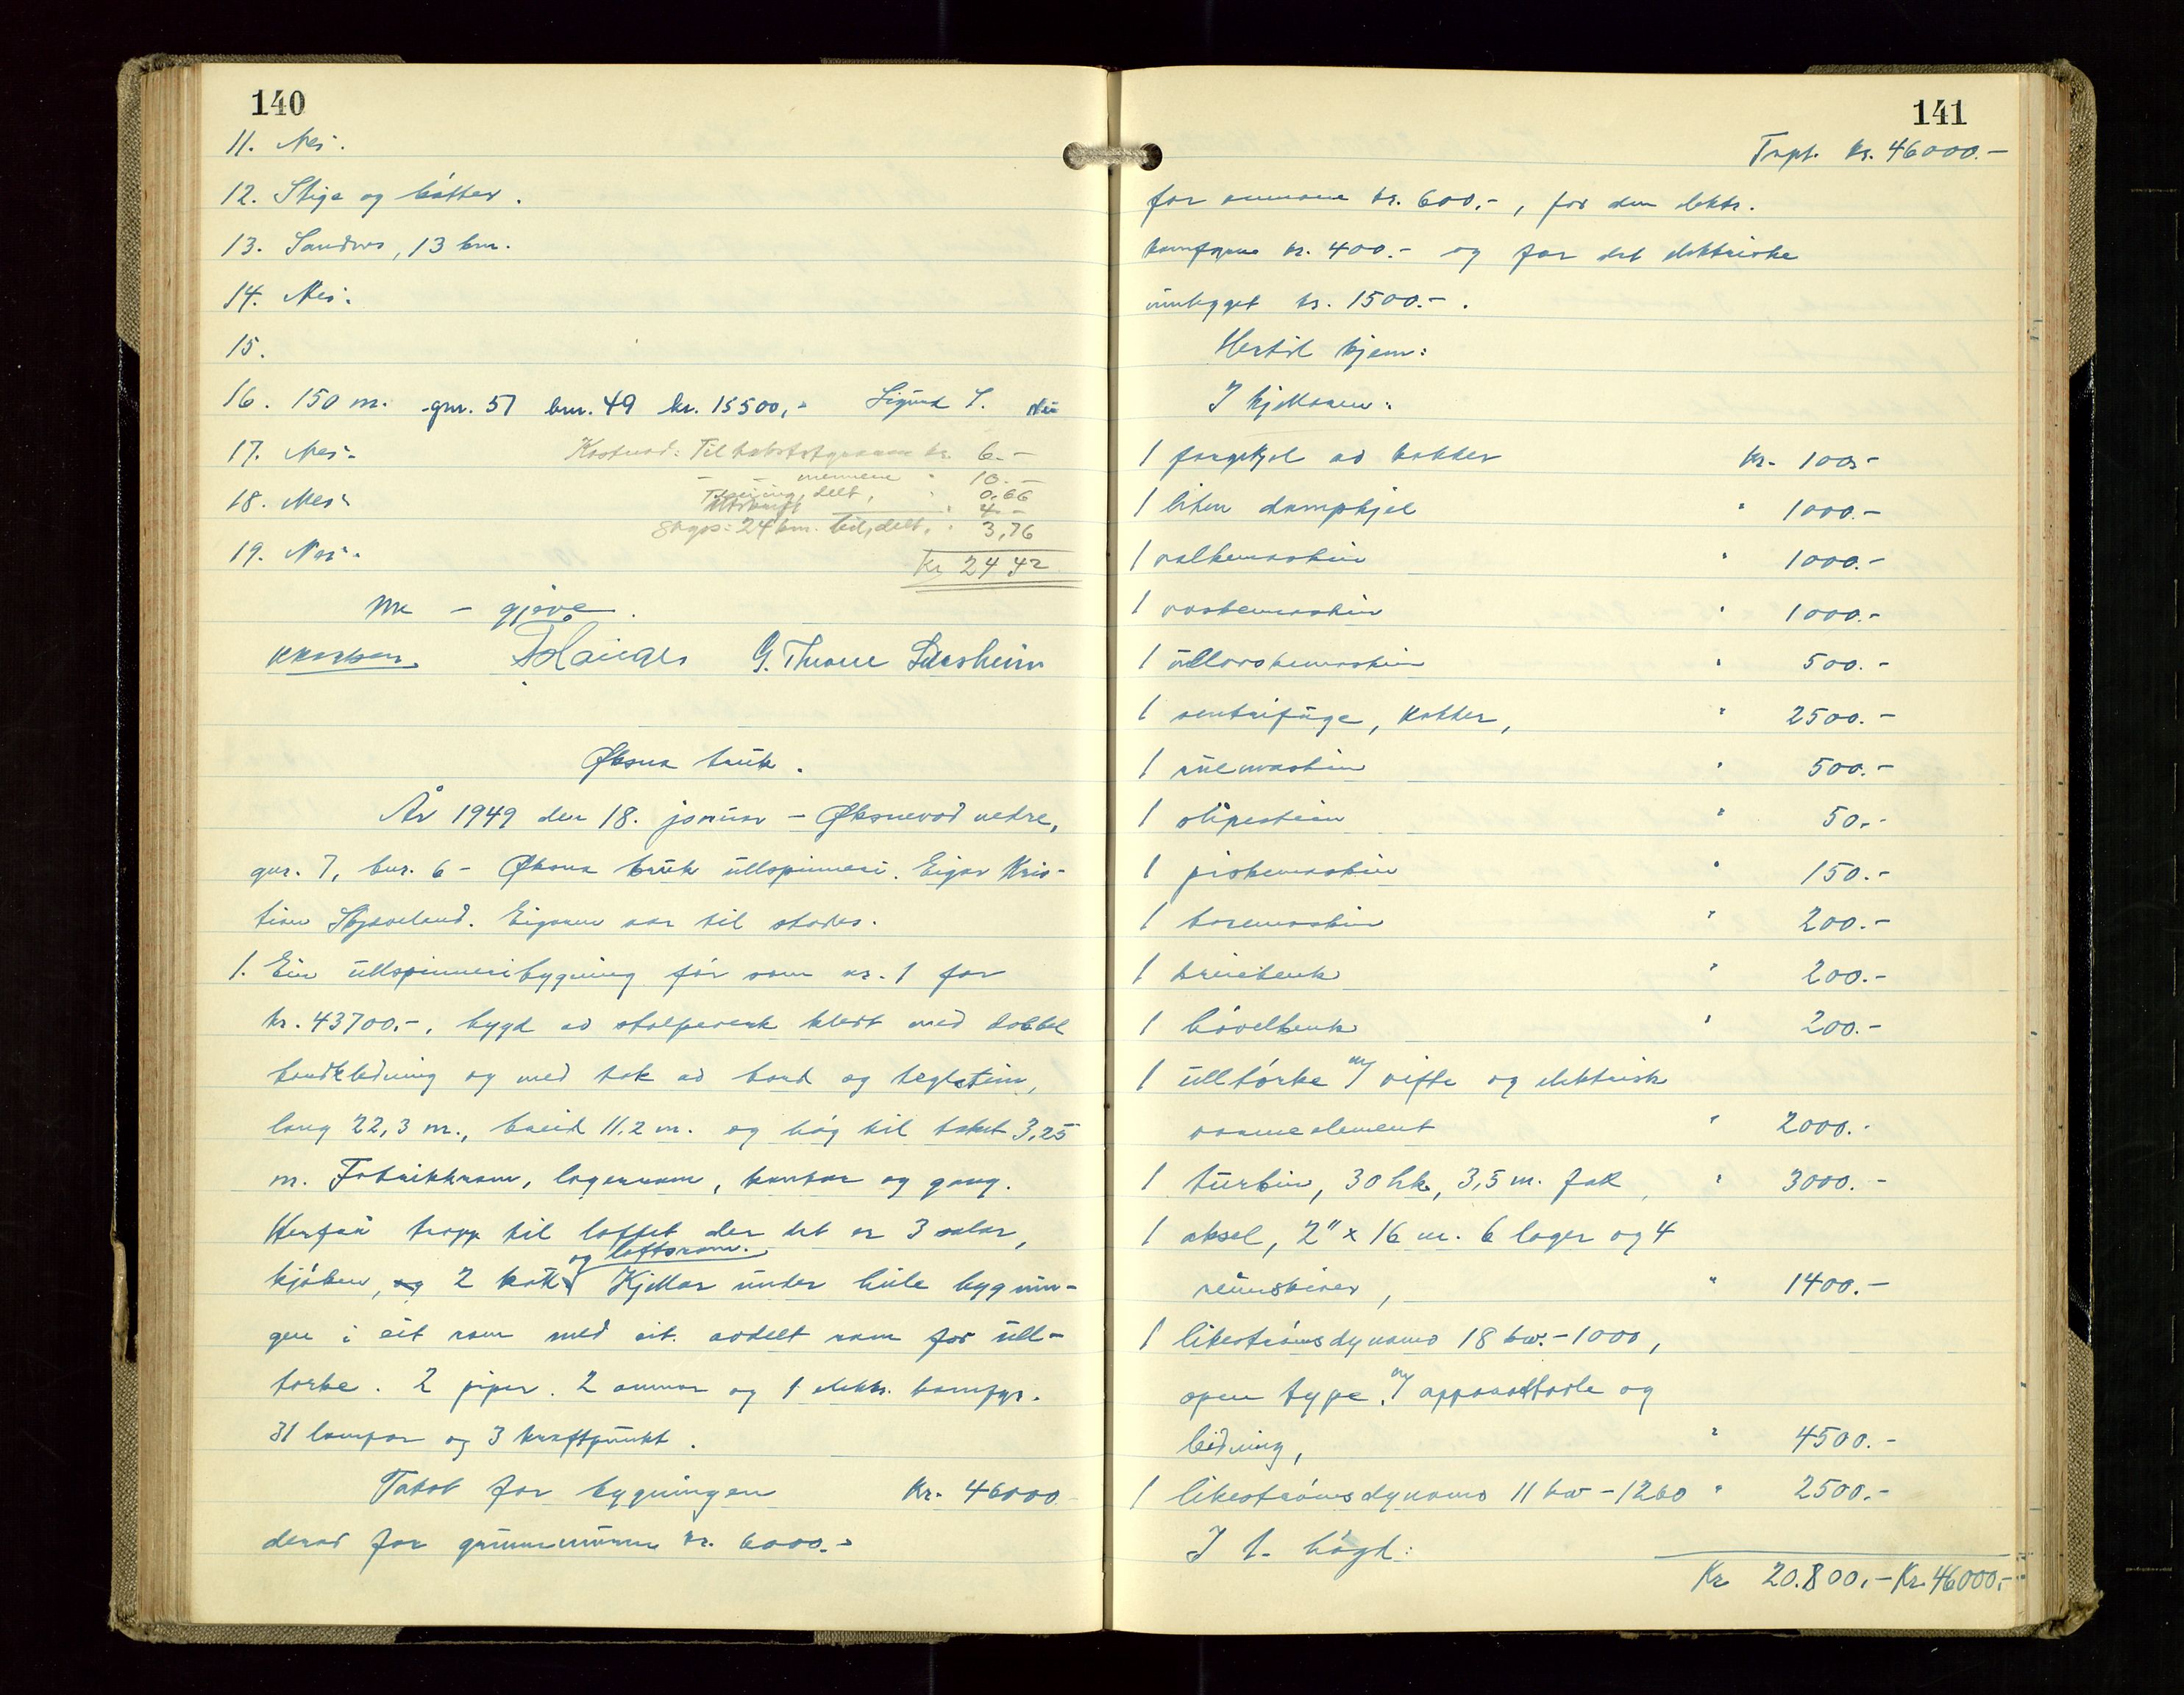 140
11. Nei.
12. Stige og bøtter.
13. Sandnes, 13 km.
14. Nei.
15.
16. 150 m. gnr. 57 bnr. 49 kr. 15500,- Sigurd T.
17. Nei.
Kostnad: Til takststyraren kr. 6.-
18. Nei.
- - mennene " 10.-
delt, " 0.66
Utskrift " 4.-
Skyss: 24 km. bil, delt, " 3,76
19. Nei.
Kr 24 42
- gjøve.
G. Thane Larsheim
Øksna bruk.
År 1949 den 18. januar - Øksnevad nedre,
gnr. 7, bnr. 6 - Øksna bruk ullspinneri. Eigar Kris-
tian Skjæveland. Eigaren var til stades.
1. Ein ullspinneribygning før som nr. 1 for
kr. 43700.-, bygd av stolpeverk kledt med dobbel
bordkledning og med tak av bord og teglstein,
lang 22,3 m., breid 11.2 m. og høg til taket 3,25
m. Fabrikkrom, lagerrom, kontor og gang.
Herfrå tropp til loftet der det er 3 salar,
og loftsrom.
kjøken, og 2 kott Kjellar under heile bygnin-
gen i eit rom med eit avdelt rom for ull-
tørke. 2 piper. 2 omnar og 1 elektr. komfyr.
31 lampar og 3 kraftpunkt.
Takst for bygningen Kr. 46000
derav for grunnmuren kr. 6000.-
141
Trpt. kr. 46000.-
for omnane kr. 600.-, for den elektr.
komfyren kr. 400.- og for det elektriske
innlegget kr. 1500.-.
Hertil kjem:
I kjellaren:
1 fargekjel av kopper Kr. 100.-
1 liten dampkjel " 1000.-
1 valkemaskin " 1000.-
1 vaskemaskin " 1000.-
1 ullvaskemaskin " 500.-
1 sentrifuge, kopper, " 2500.-
1 ruemaskin " 500.-
1 slipestein " 50.-
1 piskemaskin " 150.-
1 boremaskin " 200.-
1 dreiebenk " 200.-
1 høvelbenk " 200.-
1 ulltørke m/ vifte og elektrisk
varmeelement " 2000.-
1 turbin, 30 hk, 3,5 m. fall, " 3000.-
1 aksel, 2" x 16 m. 6 lager og 4
reimskiver, " 1400.-
1 likestrømsdynamo 18 kw.-1000,
open type m/ apparattavle og
leidning, " 4500.-
1 likestrømsdynamo 11 kw - 1260 " 2500.-
I 1. høgd:
Kr 20.800,- Kr. 46000,-